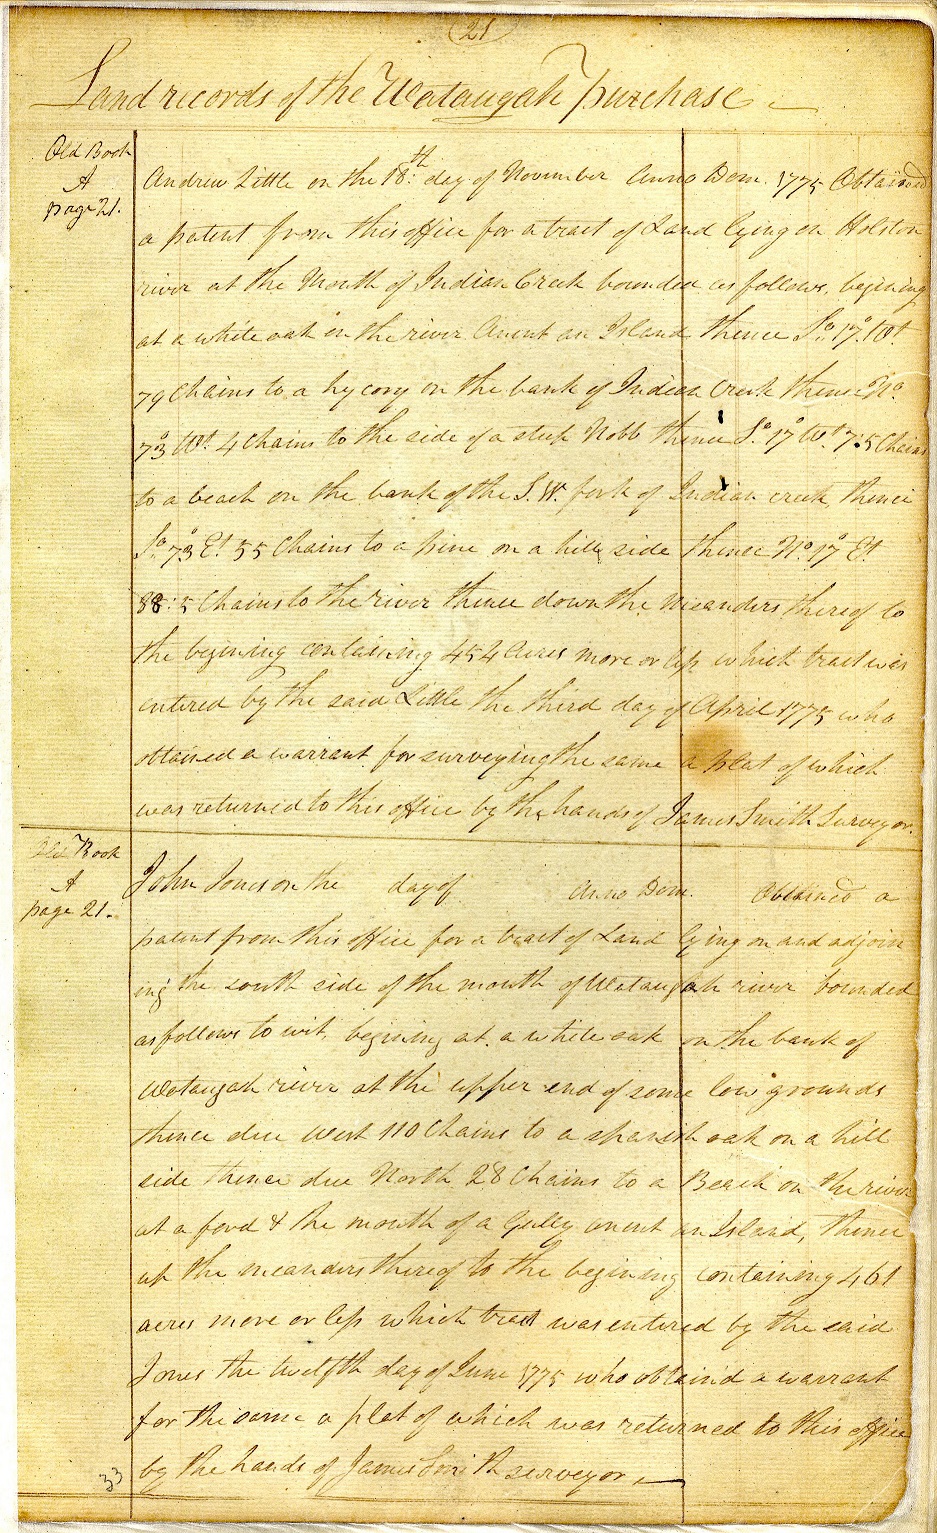 (21)
Land records of the Wataugah purchase
Old Book
A
page 21.
Andrew Little on the 18th day of November Anno Dom. 1775 Obtained
a patent from this office for a tract of Land lying on Holston
river at the Mouth of Indian Creek bounded as follows, begining
at a white oak on the river Anent an Island thence So. 17° Wt.
79 Chains to a hycory on the bank of Indian Creek thence No.
73° Wt. 4 Chains to the side of a steep Nobb thence So. 17° Wt. 7:5 Chains
to a beach on the bank of the S. W. fork of Indian creek, thence
So. 73° Et. 55 Chains to a pine on a hill side thence No. 17° Et.
88:5 Chains to the river thence down the meanders thereof to
the begining containing 454 Acres more or less which tract was
entered by the said Little the third day of April 1775 who
obtained a warrant for surveying the same a plat of which
was returned to this office by the hands of James Smith Surveyor.
Old Book
A
page 21.
John Jones on the day of Anno Dom. Obtained a
patent from this office for a tract of Land lying on and adjoin
ing the south side of the mouth of Wataugah river bounded
as follows to wit, begining at a white oak on the bank of
Wataugah river at the upper end of some low grounds
thence due West 110 Chains to a spanish oak on a hill
side thence due North 28 Chains to a Beach on the river
at a ford & the mouth of a Gully anent an Island, thence
up the meanders thereof to the begining containing 461
acres more or less which tract was entered by the said
Jones the twelfth day of June 1775 who obtaind a warrant
for the same a plat of which was returned to this office
by the hands of James Smith surveyor
33